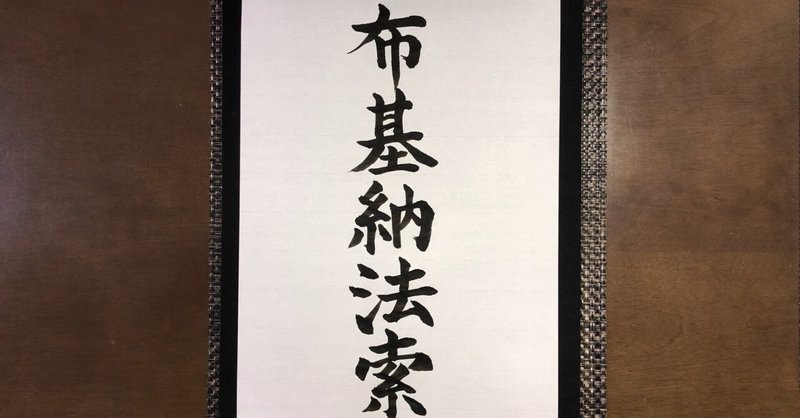 布基納法索